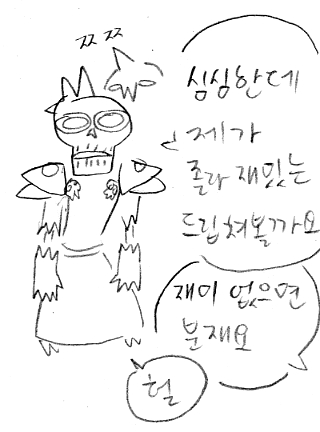 ㅉㅉ
심심한데
제가
존라 재밌는
드립쳐볼까요
재미 없으면
분재요
헐